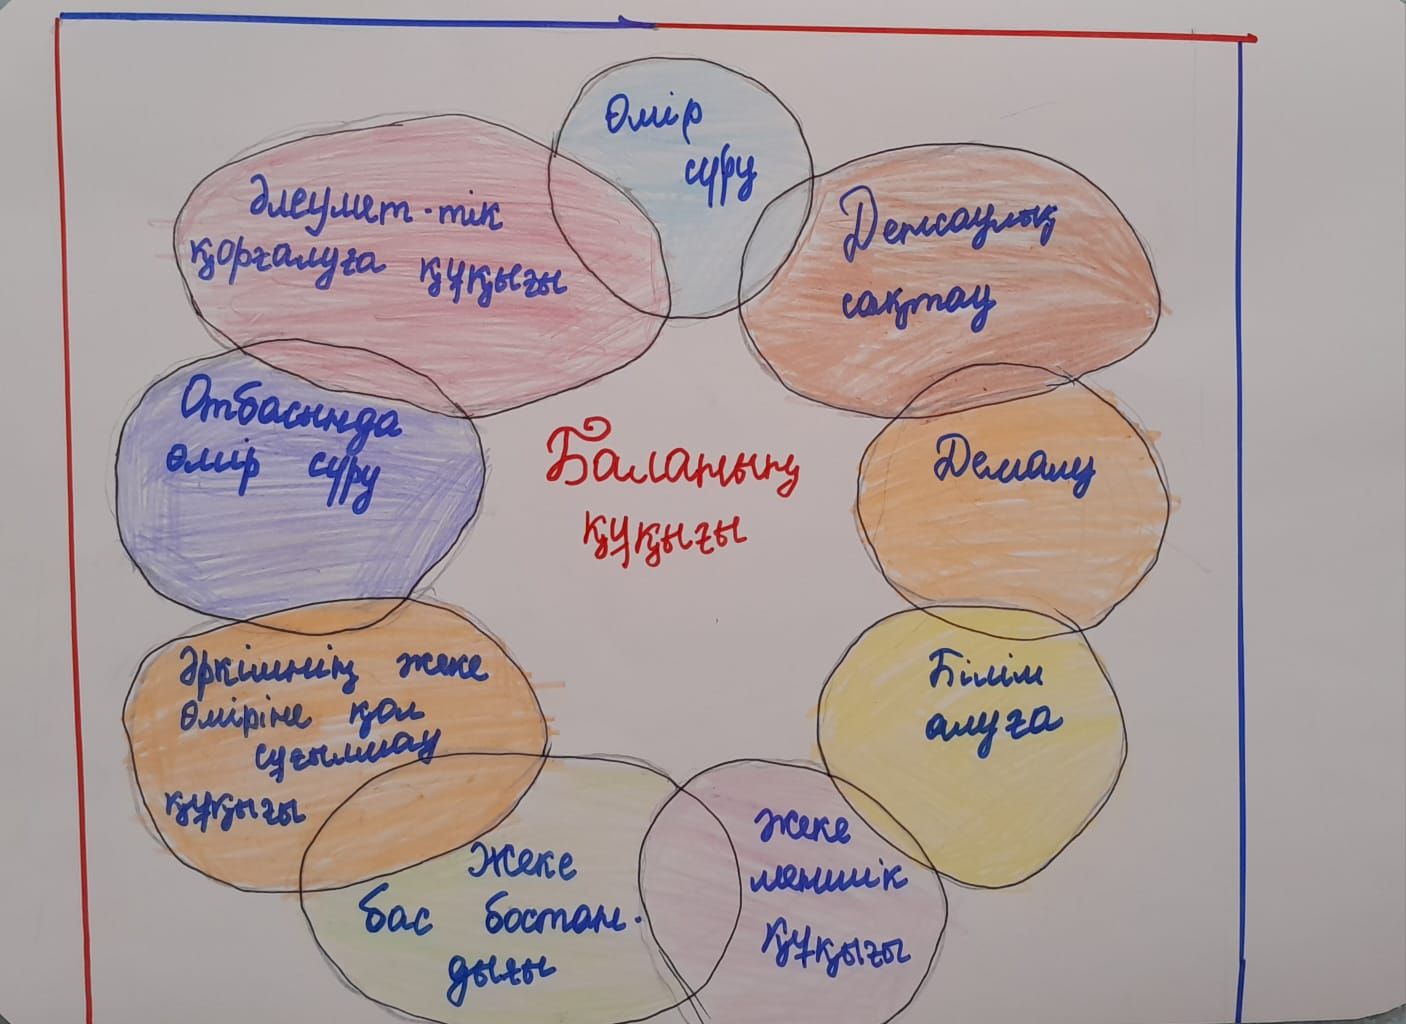 Өмір
сүру
Әлеумет-тік
қорғалуға құқығы
Денсаулық
сақтау
Отбасында
өмір сүру
Баланың
құқығы
Демалу
Әркімнің жеке
өміріне қол
сұғылмау
құқығы
Білім
алуға
Жеке
бас бостан-
дығы
Жеке
меншік
құқығы